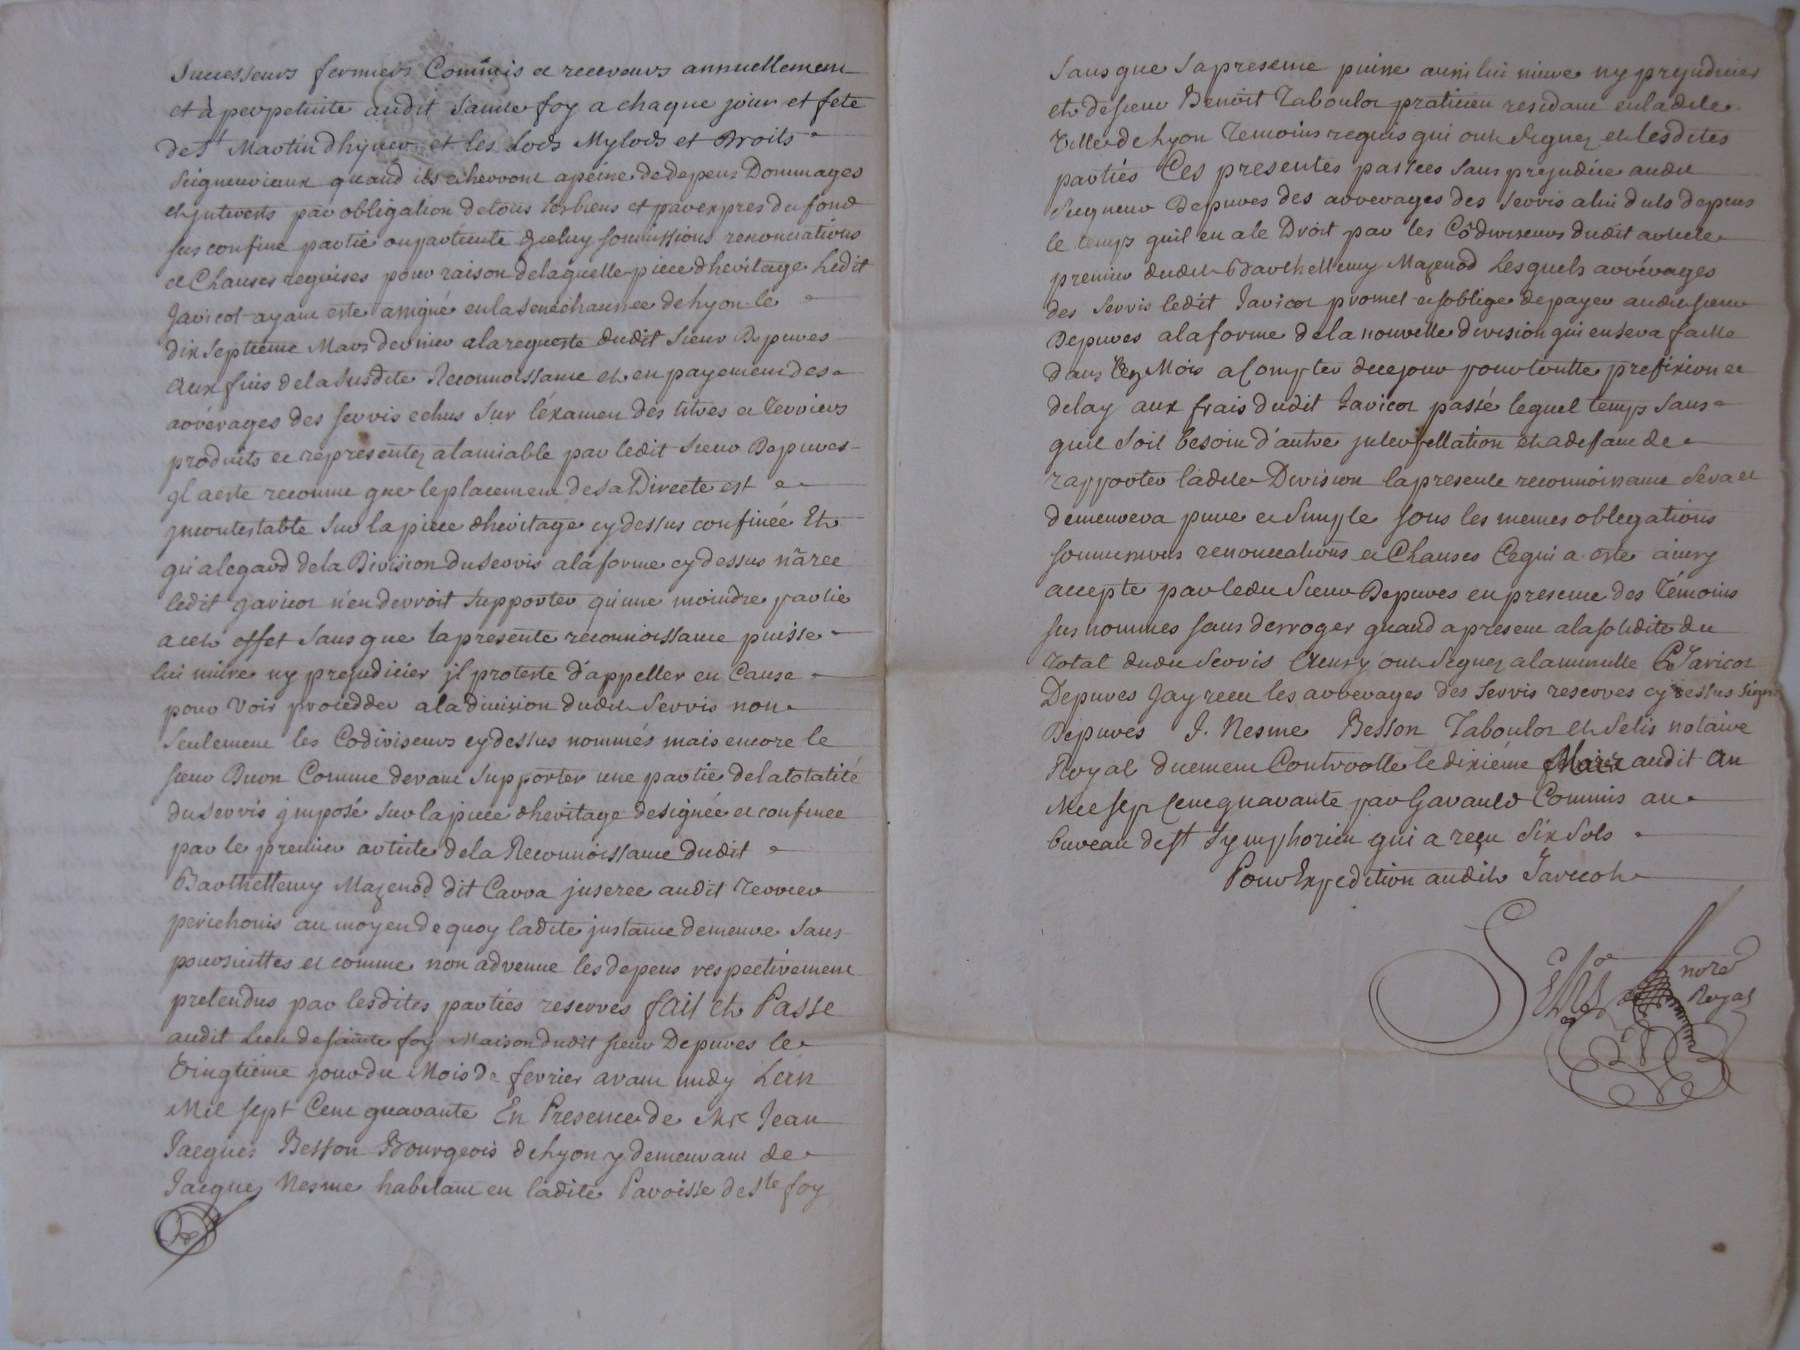 Successeurs fermiers Commis et receveurs annuellement
et à perpetuité audit Sainte foy a chaque jour et fete
de St Martin dhyver et les Lods Mylods et Droits
Seigneuriaux quand ils echerront apeine de depens Dommages
et jnterests par obligation de tous ses biens et par expres du fond
sus confiné partie ou partiente jceluy soumissions renonciations
et Clauses requises pour raison de laquelle piece dheritage Ledit
Javicot ayant esté assigné en la senechaussée de Lyon le
dix septieme Mars dernier a la requeste dudit Sieur Depures
aux fins de la susdite Reconnoissance et en payement des
arrérages des servis echus Sur léxamen des titres et Terriers
produits et representez a lamiable par ledit Sieur Depures
jl a esté reconnu que le placement de sa Directe est
jncontestable Sur la piece dheritage cy dessus confinée Et
qu'a legard de la Division du Servis a la forme cy dessus nãrée
ledit Javicot n'en devroit supporter qu'une moindre partie
a cet effet Sans que la presente reconnoissance puisse
lui nuire ny prejudicier jl proteste d'appeller en Cause
pour Voir procedder a la division dudit Servis non
Seulement les Codiviseurs cy dessus nommés mais encore le
sieur Buon Comme devant Supporter une partie de la totalité
du Servis jmposé sur la piece dheritage designée et confinée
par le premier article de la Reconnoissance dudit
Barthellemy Mazenod dit Carra jnserée audit Terrier
perichonis au moyen de quoy ladite jnstance demeure Sans
poursuittes et comme non advenue les depens respectivement
pretendus par lesdites parties reservés fait et Passé
audit Lieu de sainte foy Maison dudit sieur Depures le
Vingtieme jour du Mois de fevrier avant midy Lan
Mil sept Cent quarante En Presence de Mre Jean
Jacques Besson Bourgeois de Lyon y demeurant de
Jacques Nesme habitant en ladite Paroisse de Ste foy
Sans que Sa presence puisse aussi lui nuire ny prejudicier
et de sieur Benoit Taboulot praticien residant en ladite
Ville de Lyon Temoins requis qui ont Signez et lesdites
parties Ces presentes passées Sans prejudice audit
Seigneur Depures des arrerages des servis a lui duts depuis
le temps quil en a le Droit par les Codiviseurs dudit article
premier dudit Barthellemy Mazenod Lesquels arrérages
des Servis ledit Javicot promet et soblige de payer audit sieur
Depures a la forme de la nouvelle division qui en sera faitte
dans Mois a Compter de ce jour pour toutte prefixion et
delay aux frais dudit Javicot passé lequel temps Sans
quil soit besoin d'autre jnterpellation et a defaut de
rapporter ladite Division la presente reconnoissance Sera et
demeurera pure et Simple sous les memes obligations
soumissions renonciations et Clauses Ce qui a esté ainsy
accepté par ledit Sieur Depures en presence des Témoins
sus nommés sans derroger quand a present a la solidité du
total dudit Servis Ainsy ont Signez a la minutte C Javicot
Depures Jay receu les arrerages des Servis reservés cy dessus Signé
Depures J. Nesme Besson Taboulot et Selis notaire
Royal duement Controollé le dixiéme Mars audit an
Mil sept Cent quarante par Gavault Commis au
bureau de St Symphorien qui a reçu Six Sols
Pour Expedition audit Javicot
Selis nore
Royal